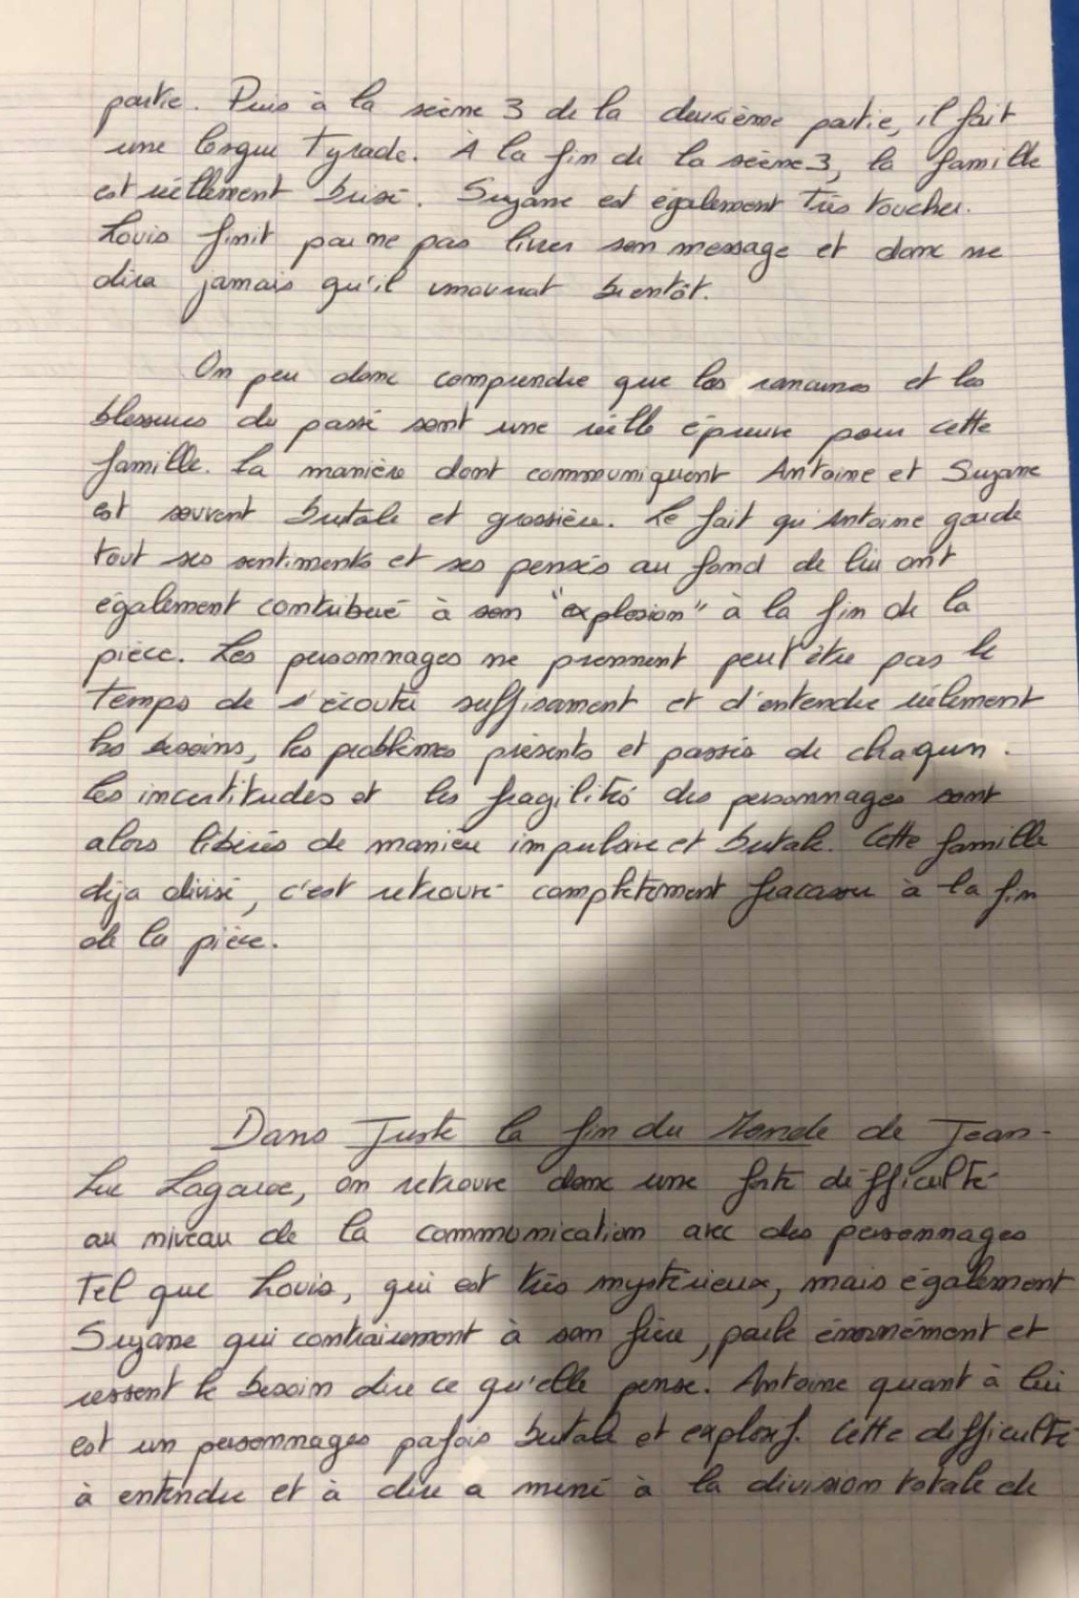 partie. Puis à la scène 3 de la deuxième partie, il fait
une longue Tyrade. À la fin de la scène 3, la famille
est réellement brisé. Suzane est également Très toucher.
Louis finit par ne pas livrer son message et donc ne
dira jamais qu'il mourrat bientôt.
On peu donc comprendre que les rancunes et les
blessures du passé sont une réelle épreuve pour cette
famille. La manière dont communiquent Antoine et Suzane
est souvent brutale et grossière. Le fait qu'Antoine garde
tout ses sentiments et ses pensés au fond de lui ont
également contribué à son "explosion" à la fin de la
pièce. Les personnages ne prennent peut être pas le
Temps de s'écouté suffisament et d'entendre réelement
les besoins, les problèmes présents et passés de chaqun.
Les incertitudes et les fragilités des personnages sont
alors libérés de manière impulsive et brutale. Cette famille
déja divisé, c'est retrouvé complètement fracassée à la fin
de la pièce.
Dans Juste la fin du Monde de Jean-
Luc Lagarce, on retrouve donc une forte difficulté
au niveau de la communication avec des personnages
Tel que Louis, qui est très mystérieux, mais également
Suzane qui contrairement à son frère, parle énormément et
ressent le besoin dire ce qu'elle pense. Antoine quant à lui
est un personnages parfois brutale et explosif. Cette difficulté
à entendre et à dire a mené à la division totale de